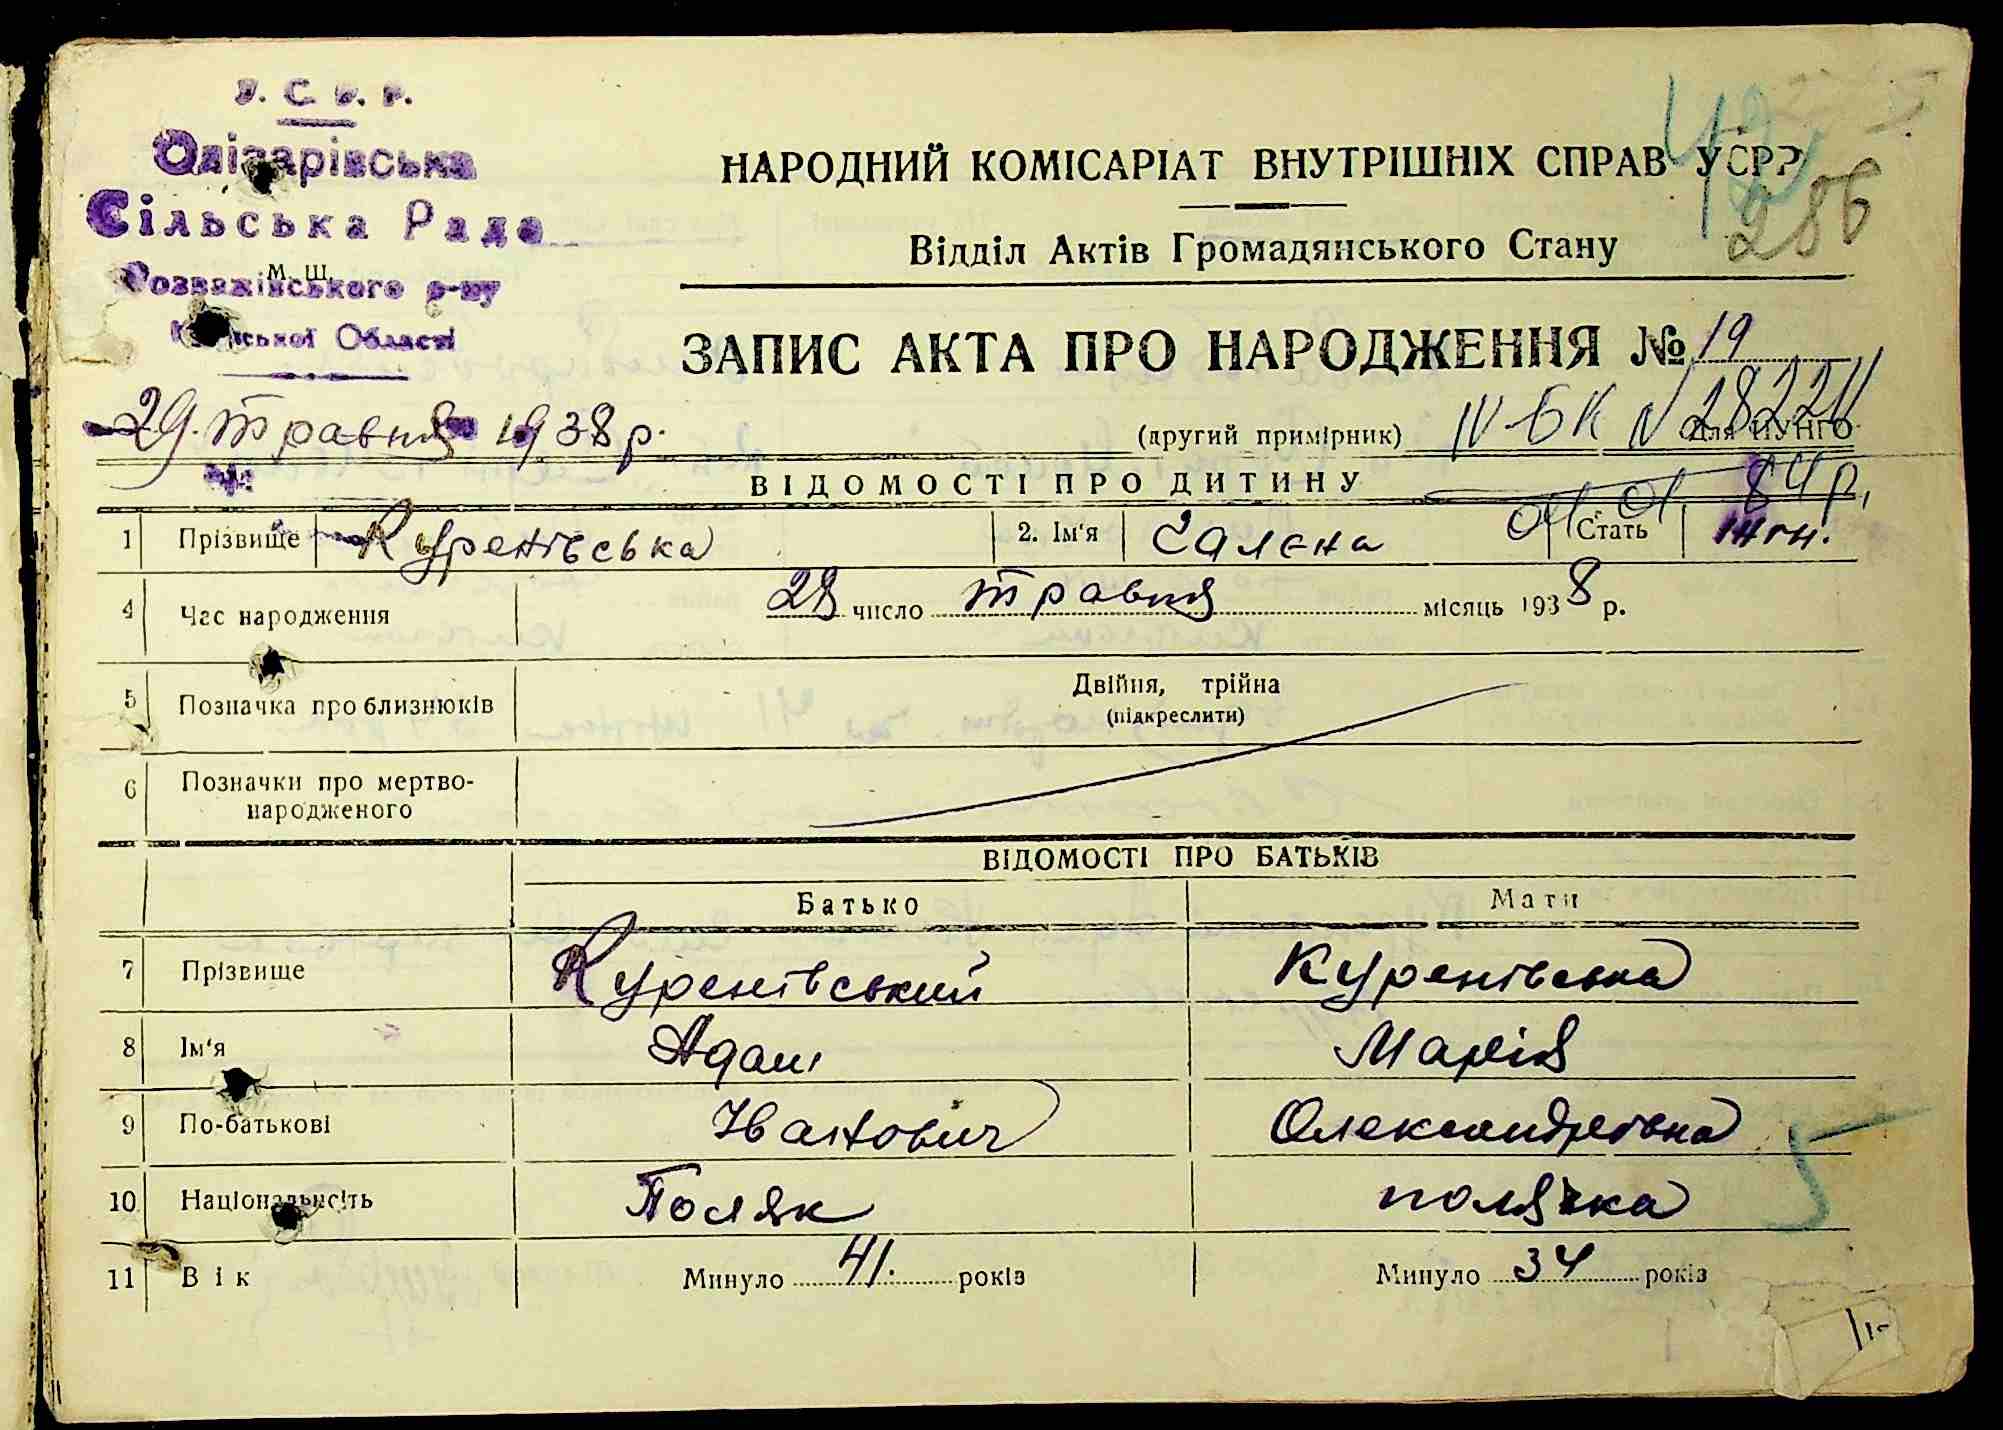 У. С. Р. Р.
Олізарівська
Сільська Рада
М. Ш.
Розважівського р-ну
Київської Області
42
286
НАРОДНИЙ КОМІСАРІАТ ВНУТРІШНІХ СПРАВ УСРР
Відділ Актів Громадянського Стану
ЗАПИС АКТА ПРО НАРОДЖЕННЯ № 19
29. травня 1938 р.
(другий примірник) IV-БК N 282211 для ЦУНГО
ВІДОМОСТІ ПРО ДИТИНУ 84р.
1 Прізвище Куренівська 2. Ім'я Салєна Стать жін.
4 Час народження 28 число травня місяць 1938 р.
5 Позначка про близнюків Двійня, трійна
(підкреслити)
6 Позначки про мертво-
народженого
ВІДОМОСТІ ПРО БАТЬКІВ
Батько Мати
7 Прізвище Куренівський Куренівська
8 Ім'я Адам Марія
9 По-батькові Іванович Олександрівна
10 Національність Поляк полячка
5
11 Вік Минуло 41. років Минуло 34 років